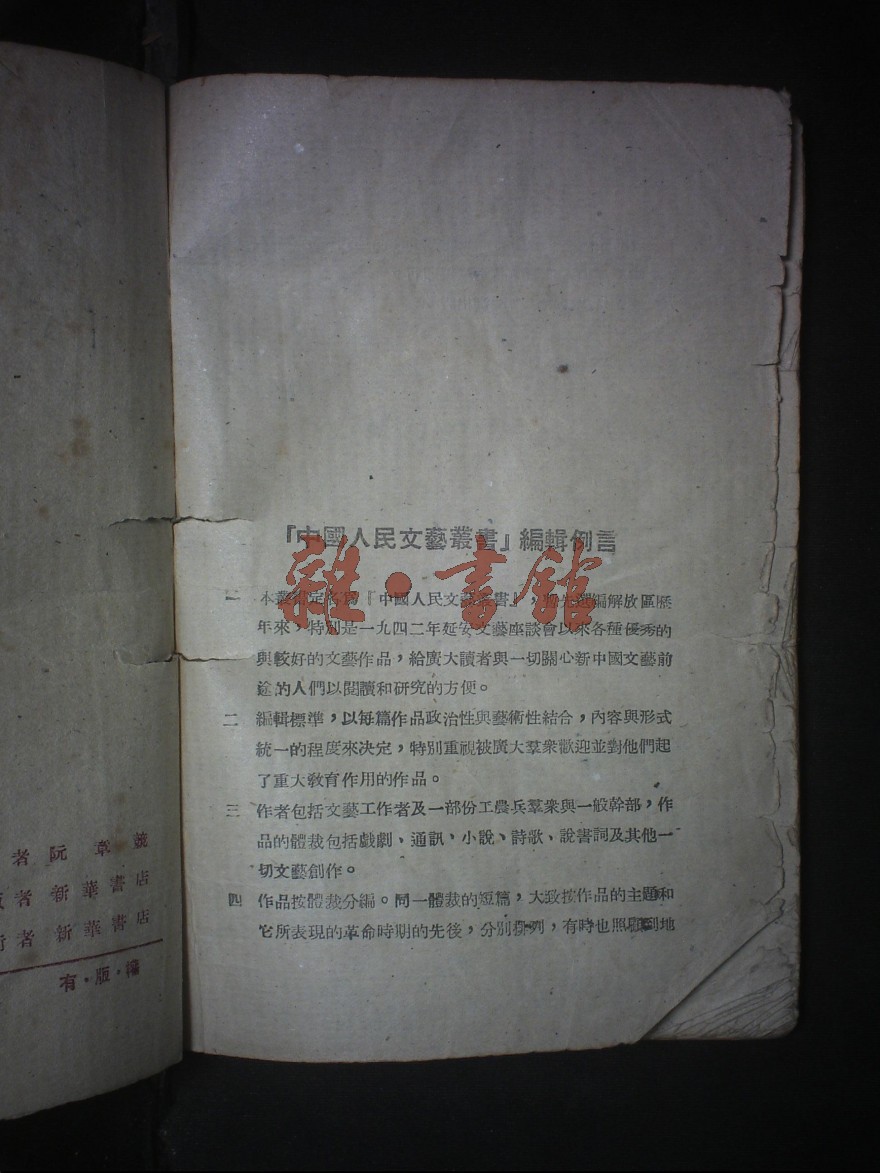 「中國人民文藝叢書」編輯例言
一 本叢書定名爲『中國人民文藝叢書』,選編解放區歷
年來,特別是一九四二年延安文藝座談會以來各種優秀的
與較好的文藝作品,給廣大讀者與一切關心新中國文藝前
途的人們以閱讀和研究的方便。
二 編輯標準,以每篇作品政治性與藝術性結合,內容與形式
統一的程度來决定,特別重視被廣大羣衆歡迎並對他們起
了重大敎育作用的作品。
三 作者包括文藝工作者及一部份工農兵羣衆與一般幹部,作
品的體裁包括戲劇、通訊、小說、詩歌、說書詞及其他一
切文藝創作。
四 作品按體裁分編。同一體裁的短篇,大致按作品的主題和
它所表現的革命時期的先後,分別排列,有時也照顧到地
雜·書館
者 阮章競
者 新華書店
者 新華書店
有·版·權